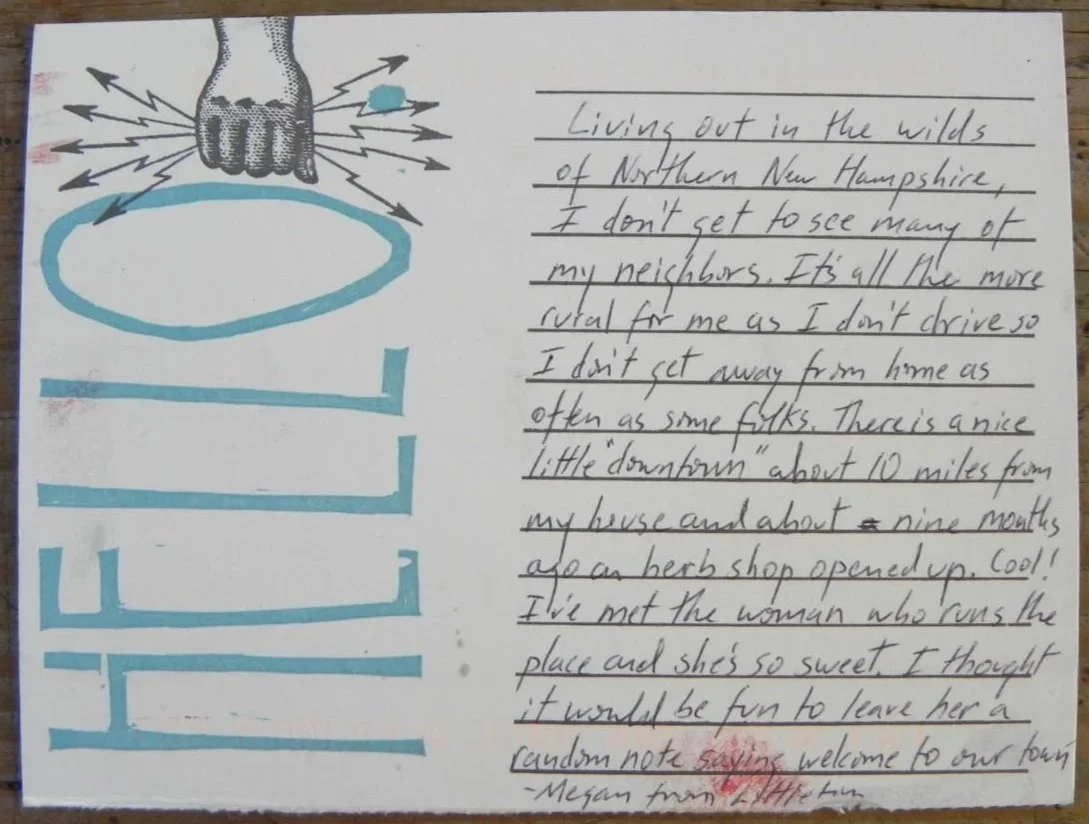 HELLO
Living out in the wilds
of Northern New Hampshire,
I don't get to see many of
my neighbors. It's all the more
rural for me as I don't drive so
I don't get away from home as
often as some folks. There is a nice
little "downtown" about 10 miles from
my house and about nine months
ago an herb shop opened up. Cool!
I've met the woman who runs the
place and she's so sweet. I thought
it would be fun to leave her a
random note saying welcome to our town
-Megan from Littleton